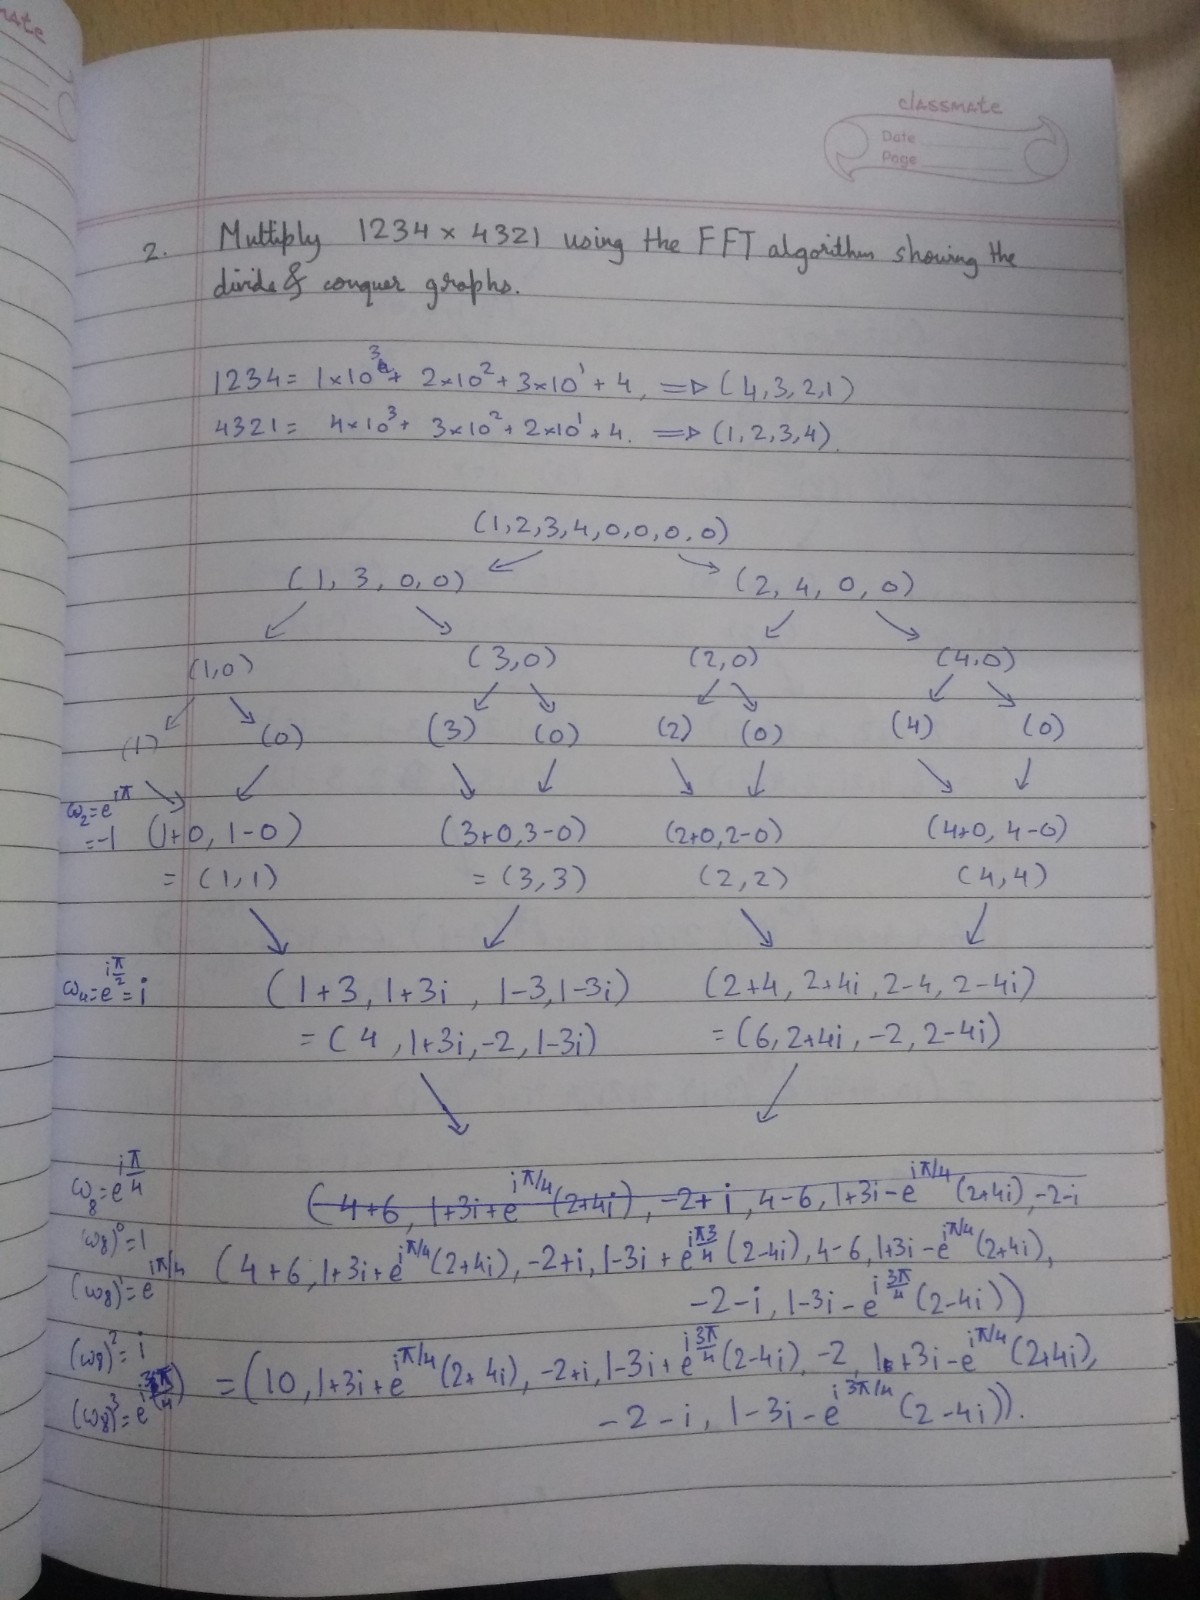 mate
classmate
Date
Page
2. Multiply 1234 × 4321 using the FFT algorithm showing the
divide & conquer graphs.
1234 = 1×10³ + 2×10² + 3×10¹ + 4, ⇒ (4,3,2,1)
4321 = 4×10³ + 3×10² + 2×10¹ + 4. ⇒ (1,2,3,4).
(1,2,3,4,0,0,0,0)
(1, 3, 0, 0) (2, 4, 0, 0)
(1,0) (3,0) (2,0) (4,0)
(1) (0) (3) (0) (2) (0) (4) (0)
ω₂ = e^{iπ}
= -1 (1+0, 1-0) (3+0, 3-0) (2+0, 2-0) (4+0, 4-0)
= (1,1) = (3,3) (2,2) (4,4)
ω₄ = e^{iπ/2} = i (1+3, 1+3i, 1-3, 1-3i) (2+4, 2+4i, 2-4, 2-4i)
= (4, 1+3i, -2, 1-3i) = (6, 2+4i, -2, 2-4i)
ω₈ = e^{iπ/4} (4+6, 1+3i+e^{iπ/4}(2+4i), -2+i, 4-6, 1+3i-e^{iπ/4}(2+4i), -2-i
(ω₈)⁰ = 1 (4+6, 1+3i+e^{iπ/4}(2+4i), -2+i, 1-3i+e^{iπ3/4}(2-4i), 4-6, 1+3i-e^{iπ/4}(2+4i),
(ω₈)¹ = e^{iπ/4} -2-i, 1-3i-e^{i3π/4}(2-4i))
(ω₈)² = i = (10, 1+3i+e^{iπ/4}(2+4i), -2+i, 1-3i+e^{i3π/4}(2-4i), -2, 1+3i-e^{iπ/4}(2+4i),
(ω₈)³ = e^{i3π/4} -2-i, 1-3i-e^{i3π/4}(2-4i)).